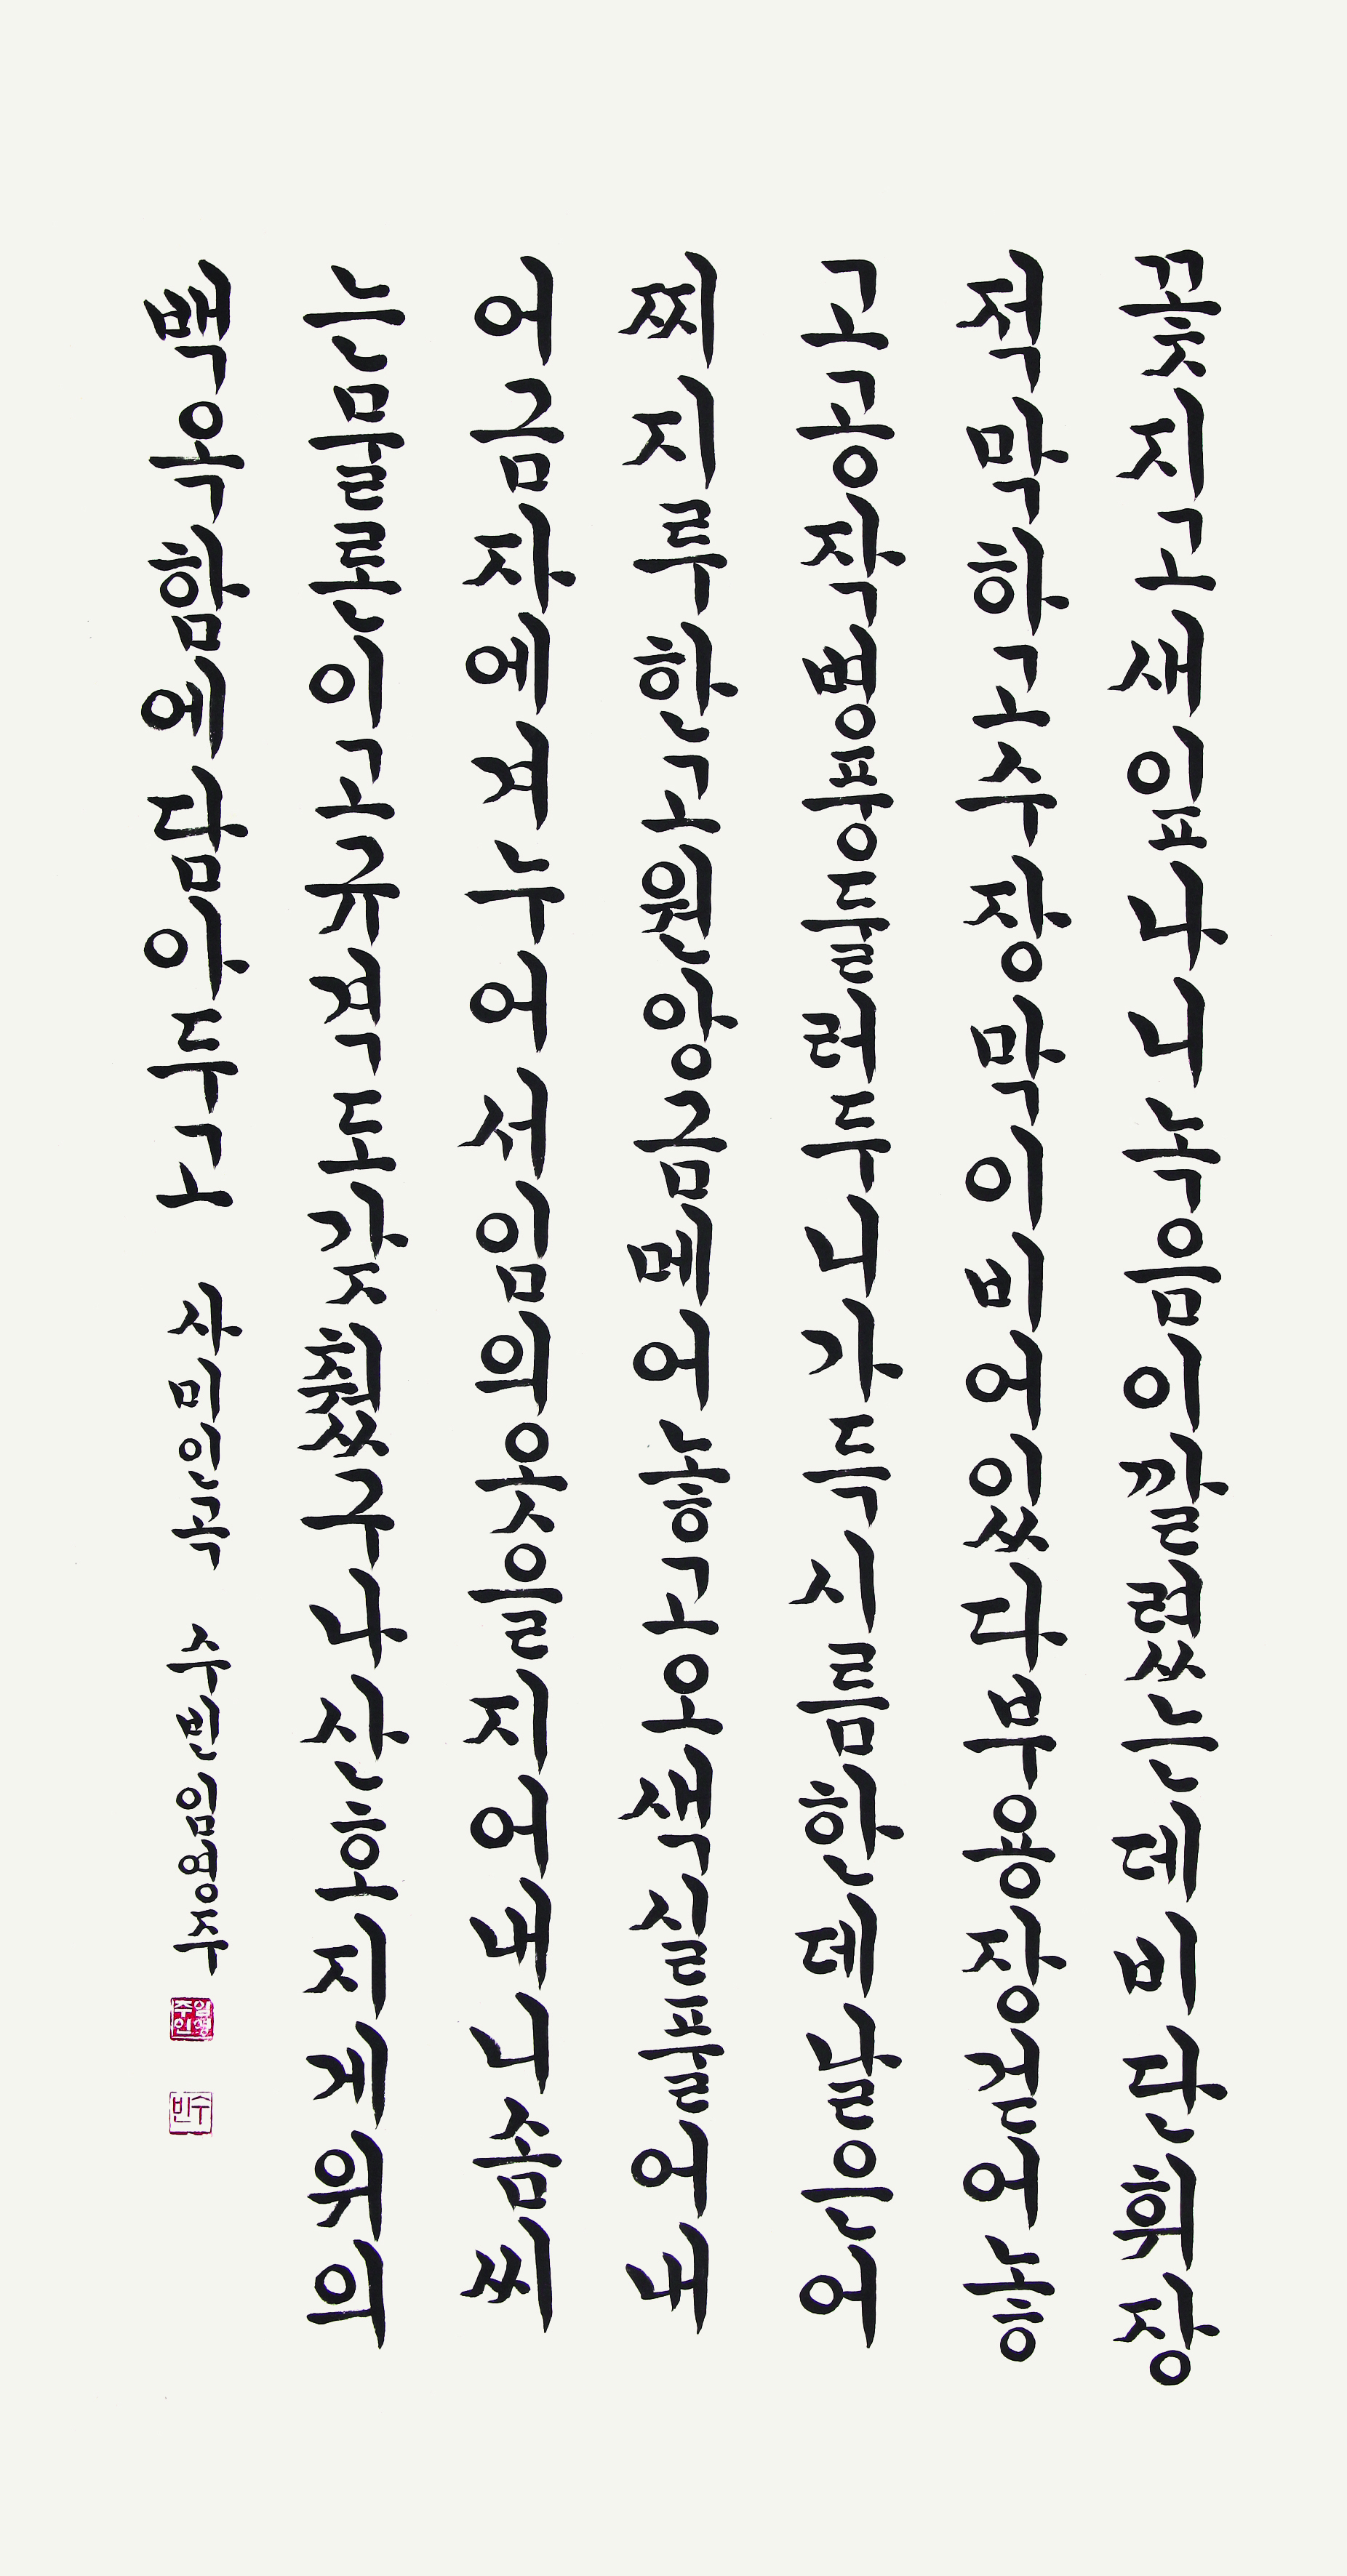 꽃지고새잎나니녹음이깔렸는데비단휘장
적막하고수장막이비어있다부용장걷어놓
고공작병풍둘러두니가득시름한데날은어
찌지루한고원앙금메어놓고오색실풀어내
어금자에겨누어서임의옷을지어내니솜씨
는물론이고규격도갖췄구나산호지게위의
백옥함에담아두고 사미인곡 수빈임영주
임영주인
수빈